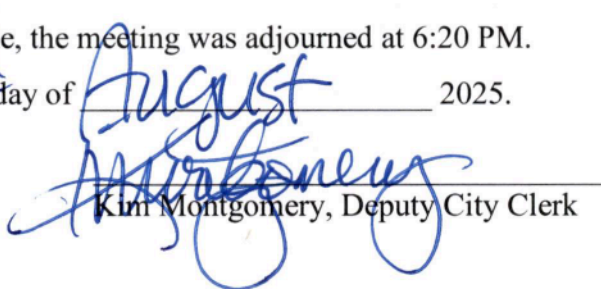 e, the meeting was adjourned at 6:20 PM.
day of August 2025.
Kim Montgomery, Deputy City Clerk